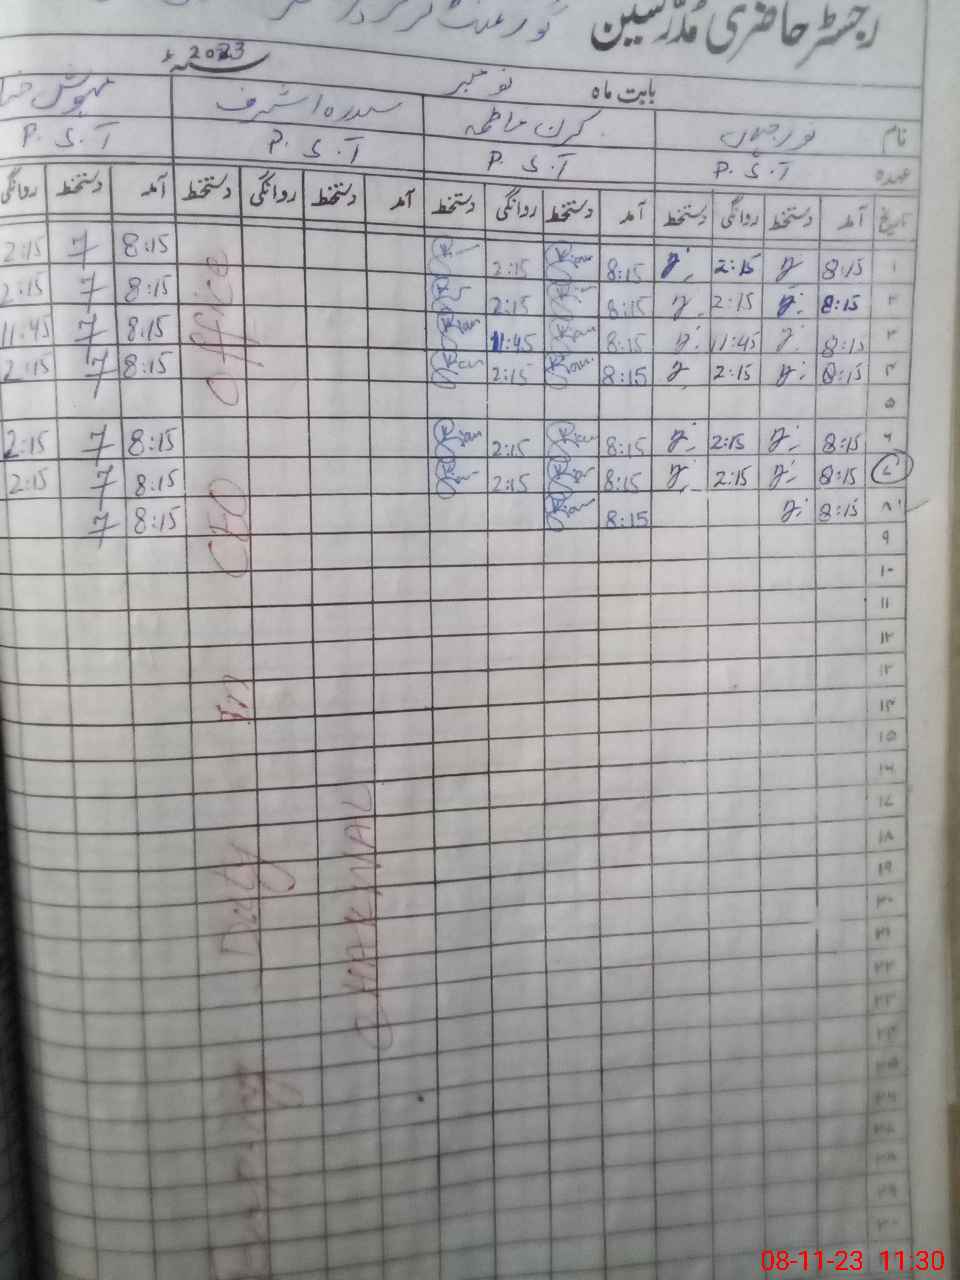 رجسٹر حاضری مدرسین گورنمنٹ گرلز
بابت ماہ نومبر سنہ 2023ء
نام نور جہاں کرن فاطمہ سدرہ اشرف مہوش
عہدہ P.S.T P.S.T P.S.T P.S.T
تاریخ آمد دستخط روانگی دستخط آمد دستخط روانگی دستخط آمد دستخط روانگی دستخط آمد دستخط روانگی
۱ 8:15 2:15 8:15 Kiran 2:15 8:15 2:15
۲ 8:15 2:15 8:15 2:15 8:15 2:15
۳ 8:15 11:45 8:15 Kiran 11:45 Kiran 8:15 11:45
۴ 8:15 2:15 8:15 Kiran 2:15 Kiran 8:15 2:15
۵
۶ 8:15 2:15 8:15 Kiran 2:15 Kiran 8:15 2:15
۷ 8:15 2:15 8:15 2:15 8:15 2:15
۸ 8:15 8:15 Kiran 8:15
۹
۱۰
۱۱
۱۲
۱۳
۱۴
۱۵
۱۶
۱۷
۱۸
۱۹
۲۰
۲۱
۲۲
۲۳
۲۴
۲۵
۲۶
۲۷
۲۸
۲۹
۳۰
Duty in CEO Office
CHAKWAL
08-11-23 11:30